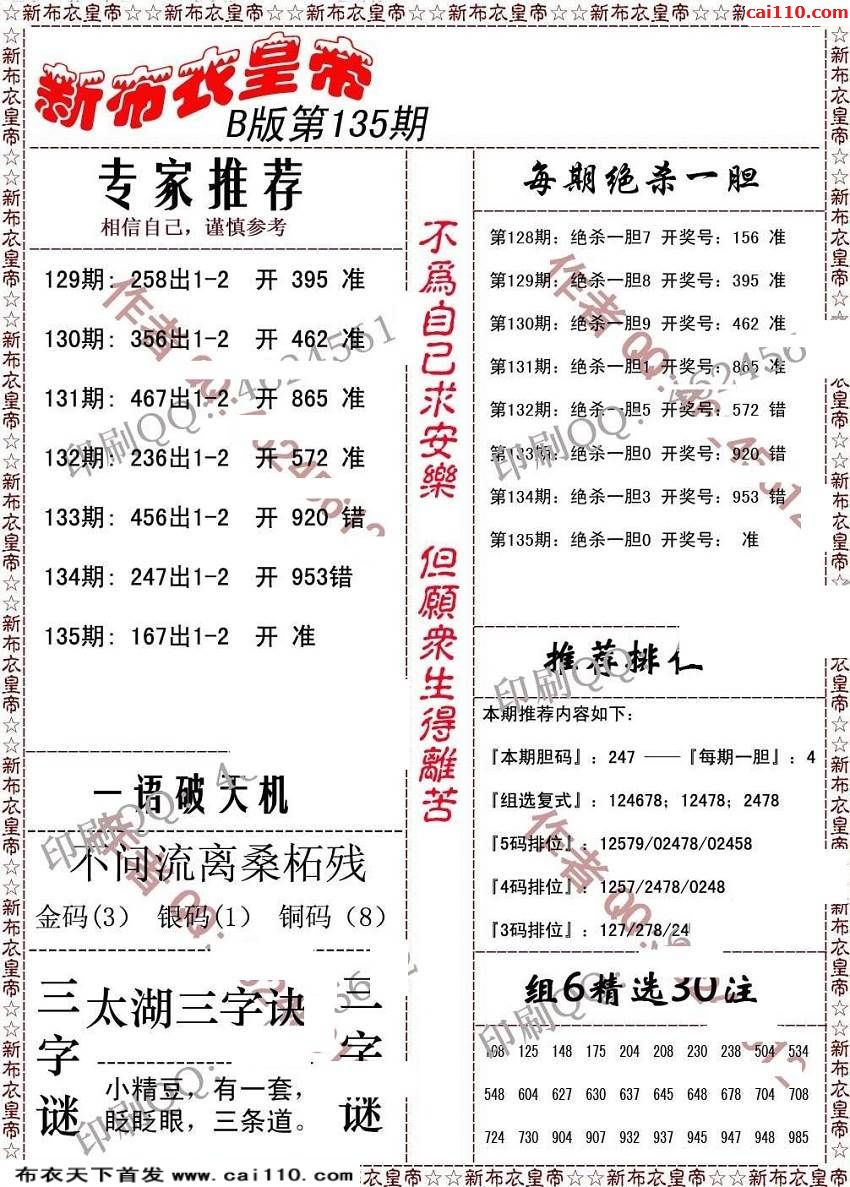 ☆☆新布衣皇帝☆☆新布衣皇帝☆☆新布衣皇帝☆☆新布衣皇帝☆☆新布衣皇帝☆☆新
cai110.com
新布衣皇帝
B版第135期
专家推荐
相信自己，谨慎参考
129期: 258出1-2 开 395 准
130期: 356出1-2 开 462 准
131期: 467出1-2 开 865 准
132期: 236出1-2 开 572 准
133期: 456出1-2 开 920 错
134期: 247出1-2 开 953错
135期: 167出1-2 开 准
一语破天机
不问流离桑柘残
金码(3) 银码(1) 铜码（8）
三字谜
太湖三字诀
小精豆，有一套，
眨眨眼，三条道。
谜
不為自己求安樂 但願衆生得離苦
每期绝杀一胆
第128期: 绝杀一胆7 开奖号: 156 准
第129期: 绝杀一胆8 开奖号: 395 准
第130期: 绝杀一胆9 开奖号: 462 准
第131期: 绝杀一胆1 开奖号: 865 准
第132期: 绝杀一胆5 开奖号: 572 错
第133期: 绝杀一胆0 开奖号: 920 错
第134期: 绝杀一胆3 开奖号: 953 错
第135期: 绝杀一胆0 开奖号: 准
推荐排
本期推荐内容如下:
『本期胆码』: 247 ——『每期一胆』: 4
『组选复式』: 124678; 12478; 2478
『5码排位』: 12579/02478/02458
『4码排位』: 1257/2478/0248
『3码排位』: 127/278/24
组6精选30注
108 125 148 175 204 208 230 238 504 534
548 604 627 630 637 645 648 678 704 708
724 730 904 907 932 937 945 947 948 985
布衣天下首发 www.cai110.com
☆☆新布衣皇帝☆☆新布衣皇帝☆☆新布衣皇帝☆☆新布衣皇帝☆☆